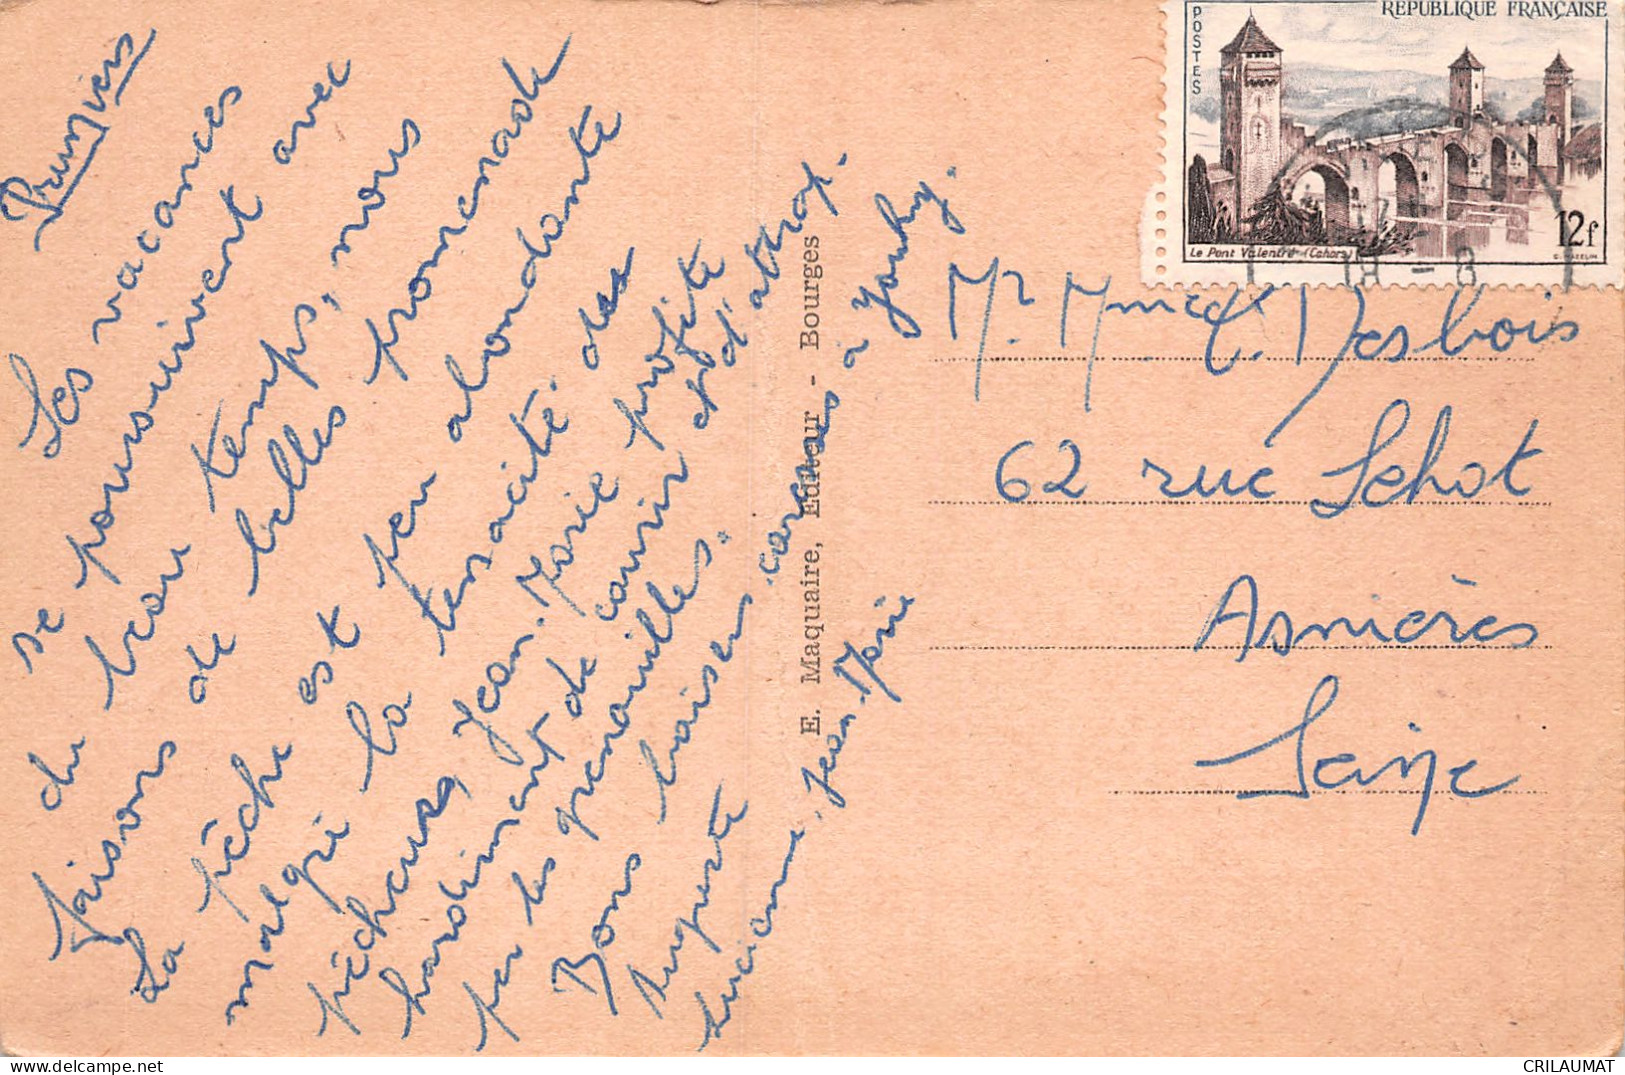 Pruniers
Les vacances
se poursuivent avec
du beau temps, nous
faisons de belles promenade
La pêche est peu abondante
malgré la tenacité des
pêcheurs, Jean. Marie profite
hardiment de courir et d'attrap.
per les grenouilles.
Bons baisers caresses à Jouhy.
Auguste
Lucienne, Jean. Marie
E. Maquaire, Editeur - Bourges
REPUBLIQUE FRANÇAISE
POSTES
12f
Le Pont Valentré - (Cahors)
18 - 8
Mr Mme Desbois
62 rue Sehot
Asnières
Seine
CRILAUMAT